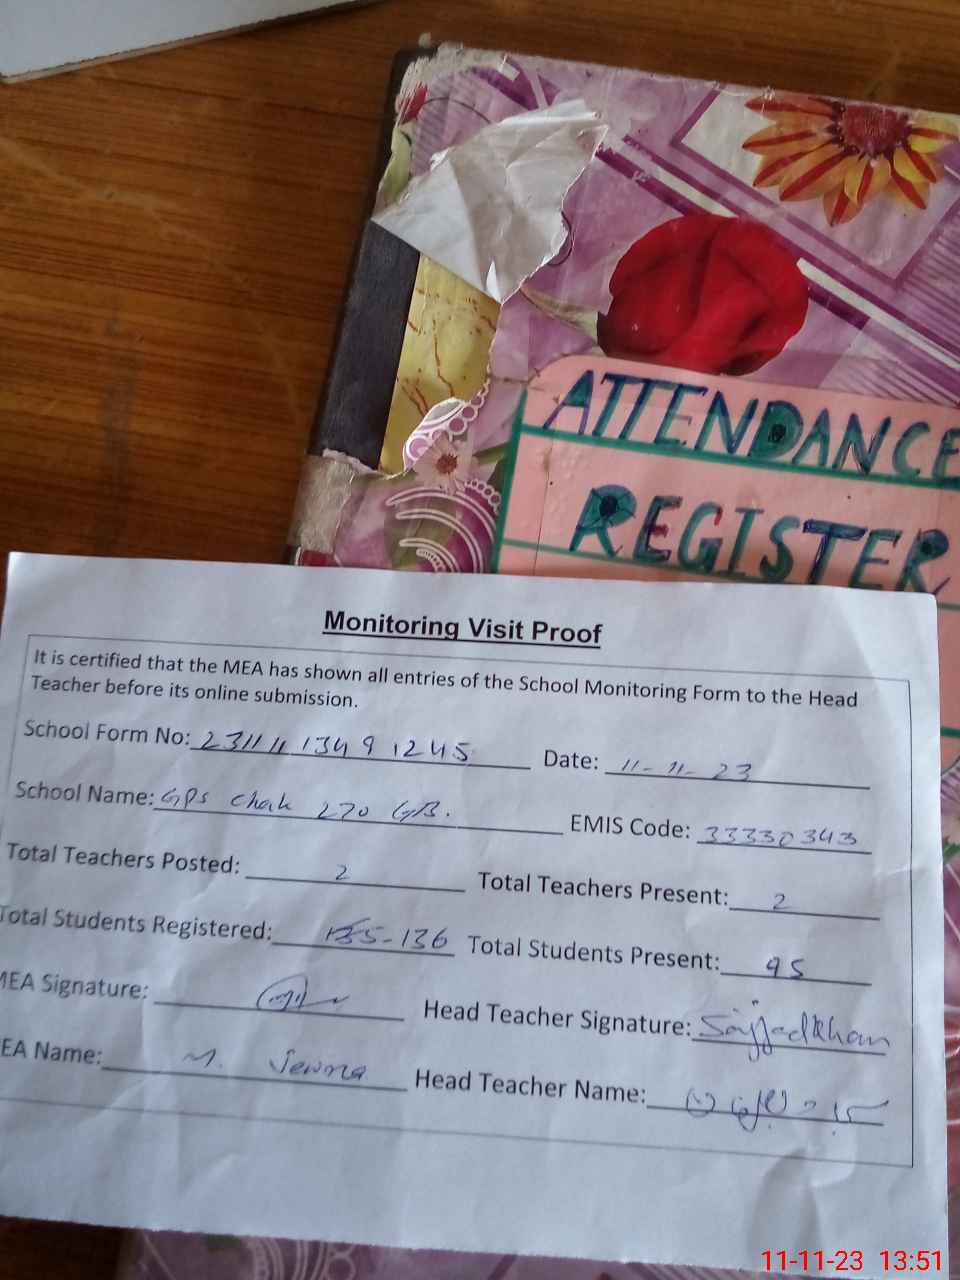 ATTENDANCE
REGISTER
Monitoring Visit Proof
It is certified that the MEA has shown all entries of the School Monitoring Form to the Head
Teacher before its online submission.
School Form No: 2311111349 1245 Date: 11-11-23
School Name: GPS Chak 270 GB. EMIS Code: 33330343
Total Teachers Posted: 2 Total Teachers Present: 2
Total Students Registered: 135-136 Total Students Present: 95
MEA Signature: Head Teacher Signature: Sajjad Khan
EA Name: M. Head Teacher Name:
11-11-23 13:51